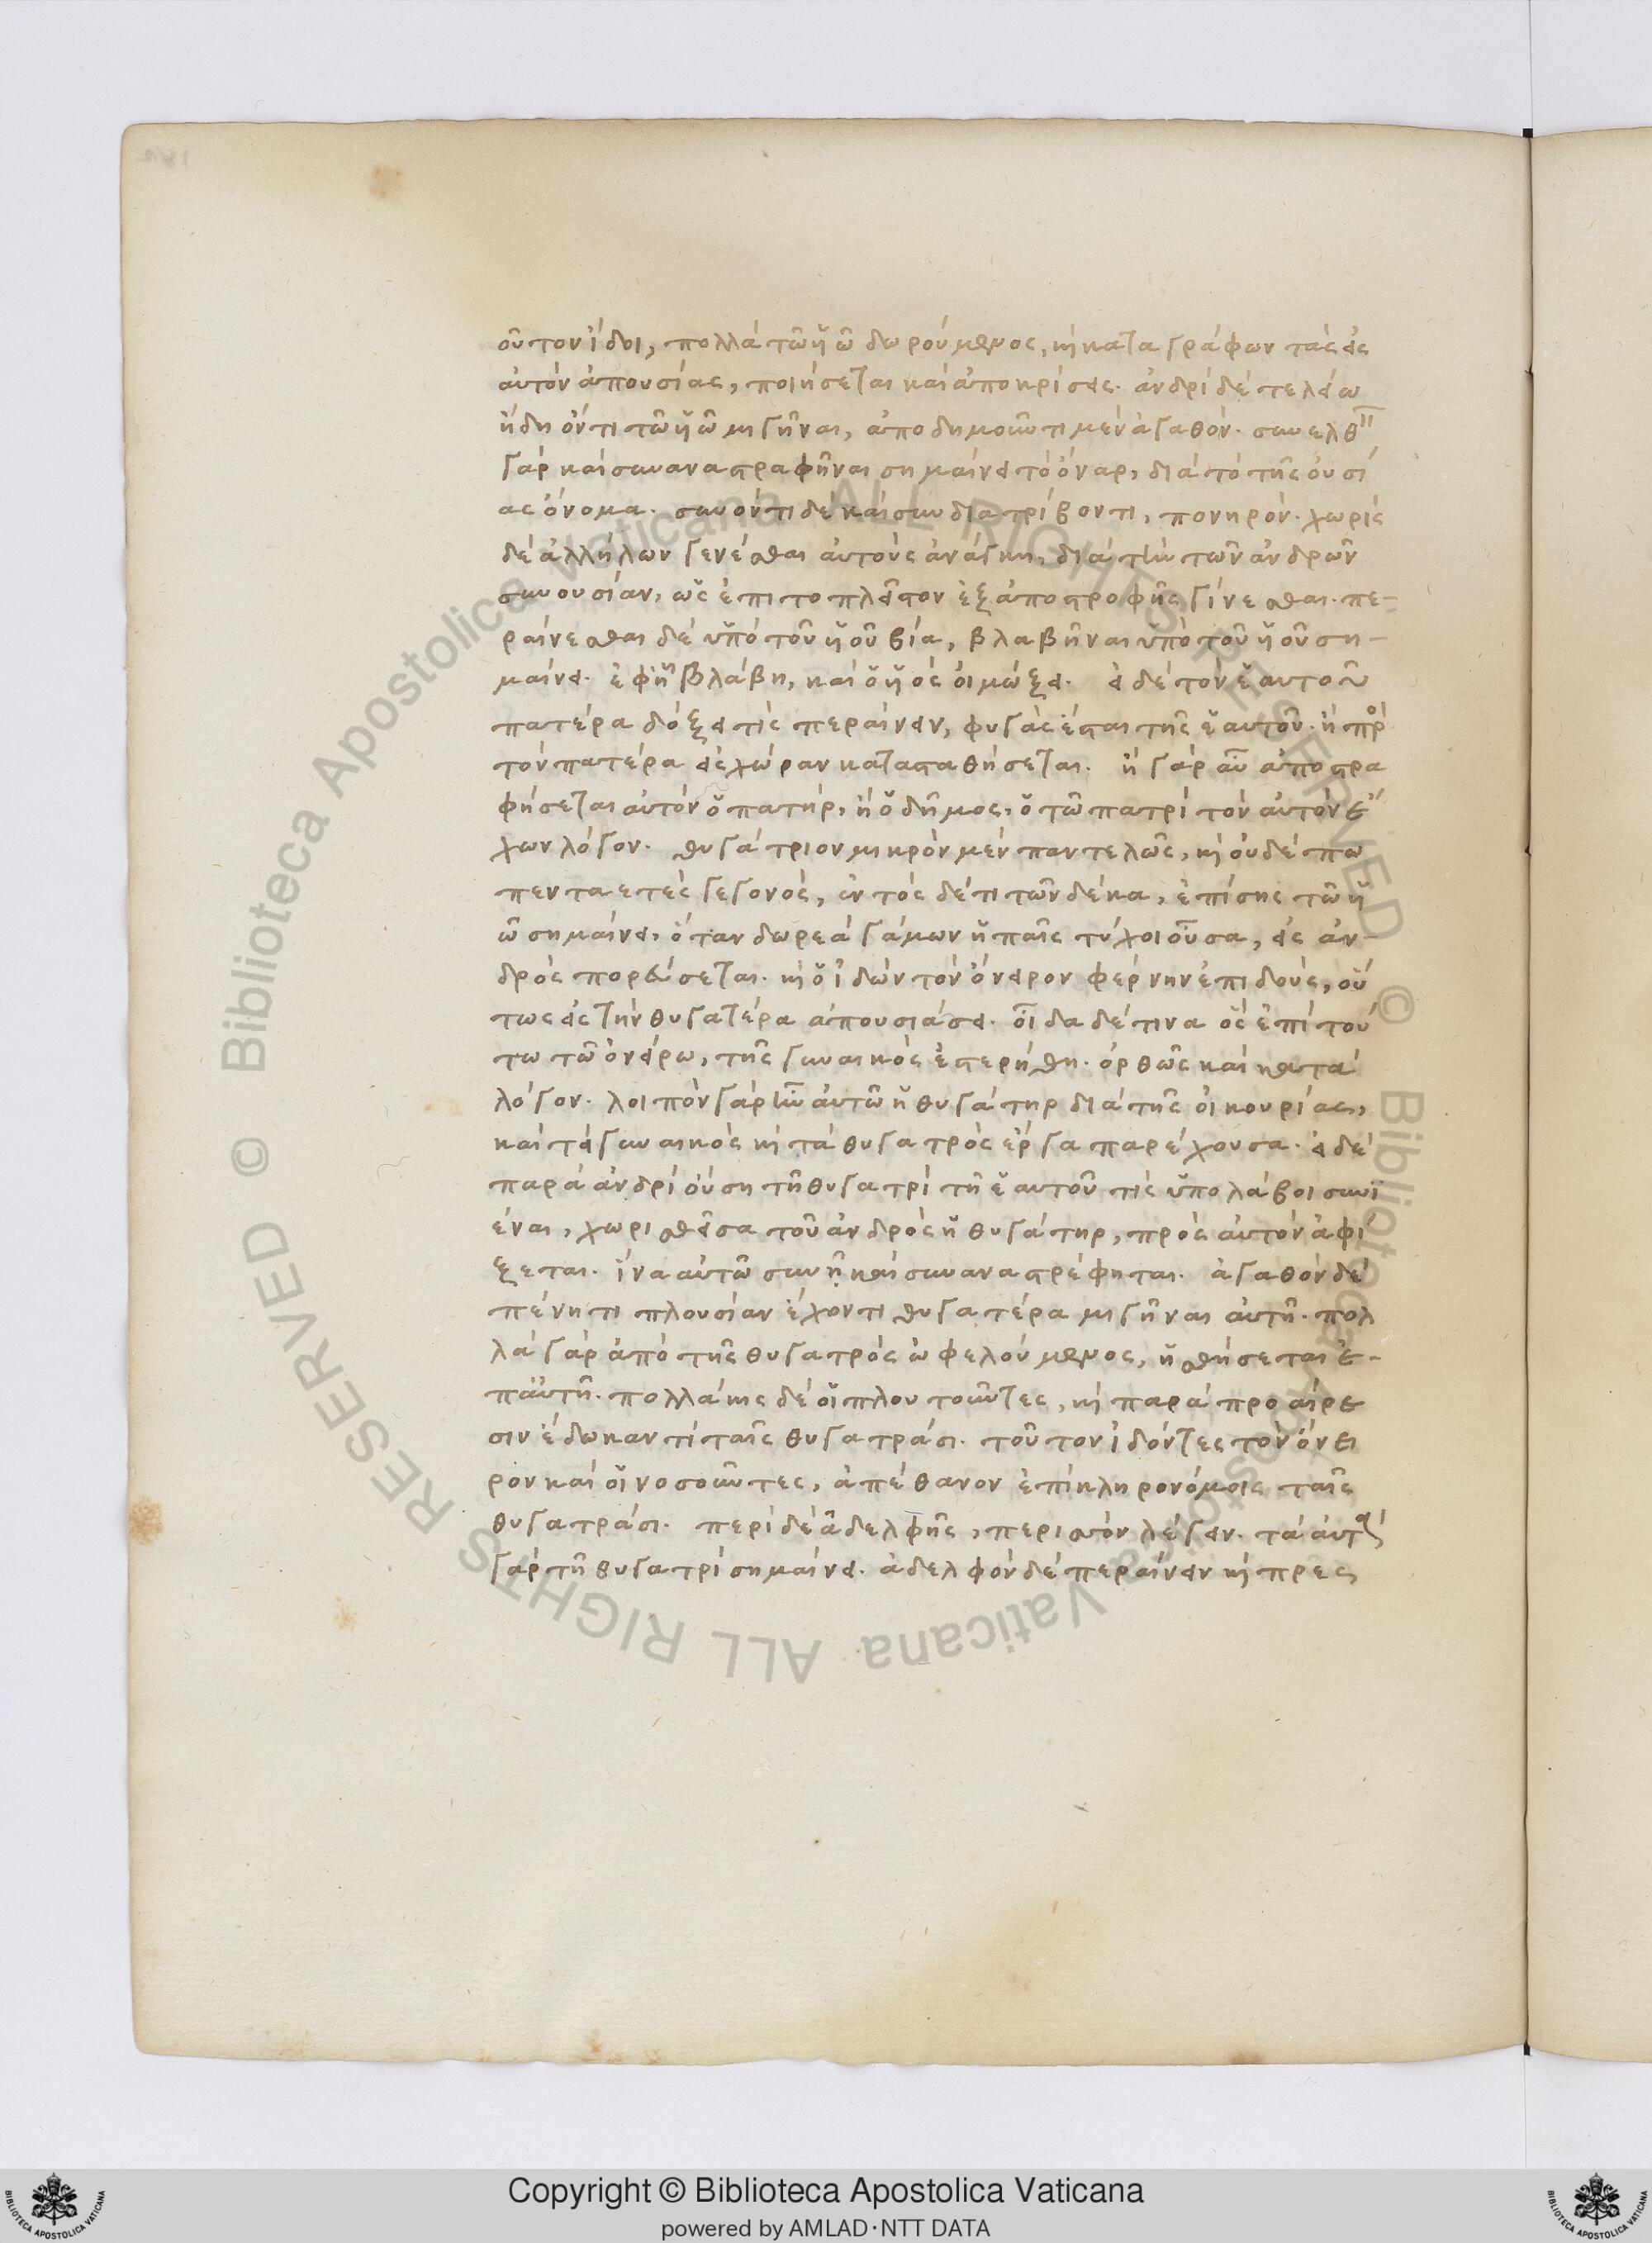 οὗτον ἴδοι, πολλὰ τῶ ὑῶ δωρούμενος, καὶ καταγράφων τὰς εἰς
αὐτὸν ἀπουσίας, ποιήσεται καὶ ἀποκρίσεις. ἀνδρὶ δὲ τελείω
ἤδη ὄντι τῶ ὑῶ μιγῆναι, ἀποδημοῦντι μὲν ἀγαθόν. συνελθεῖν
γὰρ καὶ συναναστραφῆναι σημαίνει τὸ ὄναρ, διὰ τὸ τῆς οὐσί
ας ὄνομα. συνόντι δὲ καὶ συνδιατρίβοντι, πονηρόν. χωρὶς
δὲ ἀλλήλων γενέσθαι αὐτοὺς ἀνάγκη, διὰ τὴν τῶν ἀνδρῶν
συνουσίαν, ὡς ἐπιτοπλεῖστον ἐξ ἀποστροφῆς γίνεσθαι. πε-
ραίνεσθαι δὲ ὑπὸ τοῦ ὑοῦ βία, βλαβῆναι ὑπὸ τοῦ ὑοῦ ση-
μαίνει. ἐφ' ἧ βλάβη, καὶ ὁ ὑὸς οἰμώξει. εἰ δὲ τὸν ἑαυτοῦ
πατέρα δόξει τὶς περαίνειν, φυγὰς ἔσται τῆς ἑαυτοῦ. ἢ πρὸς
τὸν πατέρα εἰς χώραν καταπαθήσεται. ἢ γὰρ αὖ ἀποστρα
φήσεται αὐτὸν ὁ πατὴρ, ἢ ὁ δῆμος, ὁ τῶ πατρὶ τὸν αὐτὸν ἔ
χων λόγον. θυγάτριον μικρὸν μὲν παντελῶς, καὶ οὐδέπω
πενταετὲς γεγονός, ἐντὸς δέ τι τῶν δέκα, ἐπίσης τῶ ὑ
ῶ σημαίνει, ὅταν δωρεὰ γάμων ἡ παῖς τύχοι οὖσα, εἰς ἀν-
δρὸς πορεύσεται. καὶ ὁ ἰδὼν τὸν ὄνειρον φέρνην ἐπιδοὺς, οὕ
τως εἰς τὴν θυγατέρα ἀπουσιάσει. οἶδα δέ τινα ὃς ἐπὶ τού
τω τῶ ὀνείρω, τῆς γυναικὸς ἐστερήθη. ὀρθῶς καὶ κατὰ
λόγον. λοιπὸν γὰρ ἦν αὐτῶ ἡ θυγάτηρ διὰ τῆς οἰκουρίας,
καὶ τὰ γυναικὸς καὶ τὰ θυγατρὸς ἔργα παρέχουσα. εἰ δὲ
παρὰ ἀνδρὶ οὔση τῆ θυγατρὶ τῆ ἑαυτοῦ τὶς ὑπολάβοι συνϊ
έναι, χωρισθεῖσα τοῦ ἀνδρὸς ἡ θυγάτηρ, πρὸς αὐτὸν ἀφί
ξεται. ἵνα αὐτῶ συνῆ καὶ συναναστρέφηται. ἀγαθὸν δὲ
πένητι πλουσίαν ἔχοντι θυγατέρα μιγῆναι αὐτῆ. πολ
λὰ γὰρ ἀπὸ τῆς θυγατρὸς ὠφελούμενος, ἡσθήσεται ἐ-
π' αὐτῆ. πολλάκις δὲ οἱ πλουτοῦντες, καὶ παρὰ προαίρε
σιν ἔδωκαν τὶ ταῖς θυγατράσι. τοῦτον ἰδόντες τὸν ὄνει
ρον καὶ οἱ νοσοῦντες, ἀπέθανον ἐπικληρονόμοις ταῖς
θυγατράσι. περὶ δὲ ἀδελφῆς, περισσὸν λέγειν. τὰ αὐτὰ
γὰρ τῆ θυγατρὶ σημαίνει. ἀδελφὸν δὲ περαίνειν καὶ πρεσ
Copyright © Biblioteca Apostolica Vaticana
powered by AMLAD·NTT DATA
© Biblioteca Apostolica Vaticana ALL RIGHTS RESERVED
© Biblioteca Apostolica Vaticana ALL RIGHTS RESERVED
BIBLIOTECA APOSTOLICA VATICANA
BIBLIOTECA APOSTOLICA VATICANA